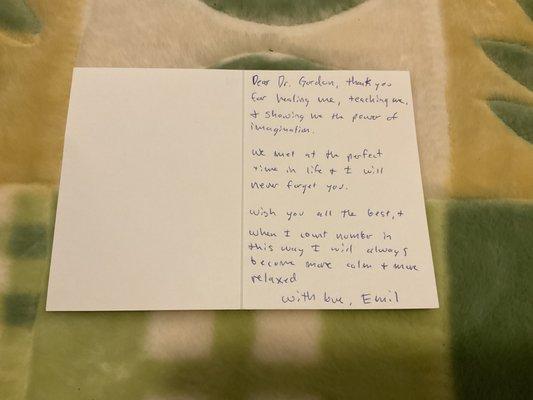 Dear Dr. Gordon, thank you
for healing me, teaching me,
& showing me the power of
imagination.
We met at the perfect
time in life & I will
never forget you.
Wish you all the best, &
when I count number in
this way I will always
become more calm & more
relaxed
with love, Emil